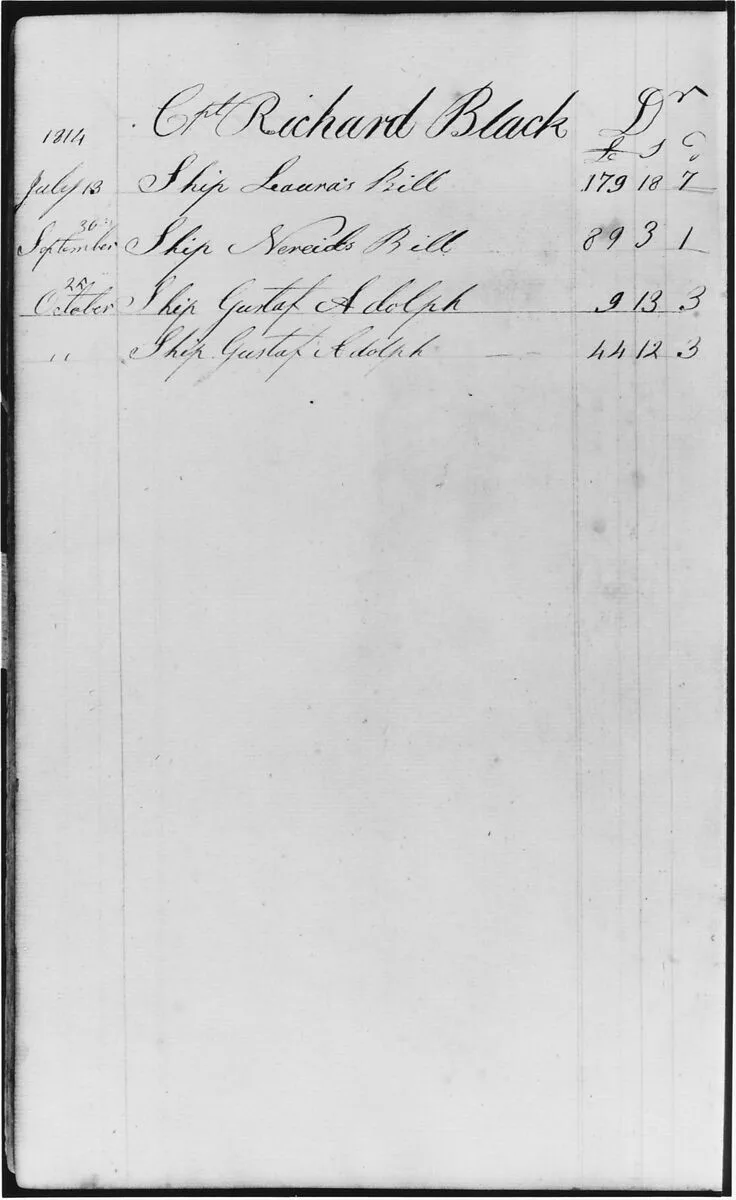 Cpt Richard Black Dr
1814 £ S D
July 13 Ship Laura's Bill 179 18 7
September 30th Ship Nereids Bill 89 3 1
October 27 Ship Gustaf Adolph 9 13 3
" Ship Gustaf Adolph 44 12 3